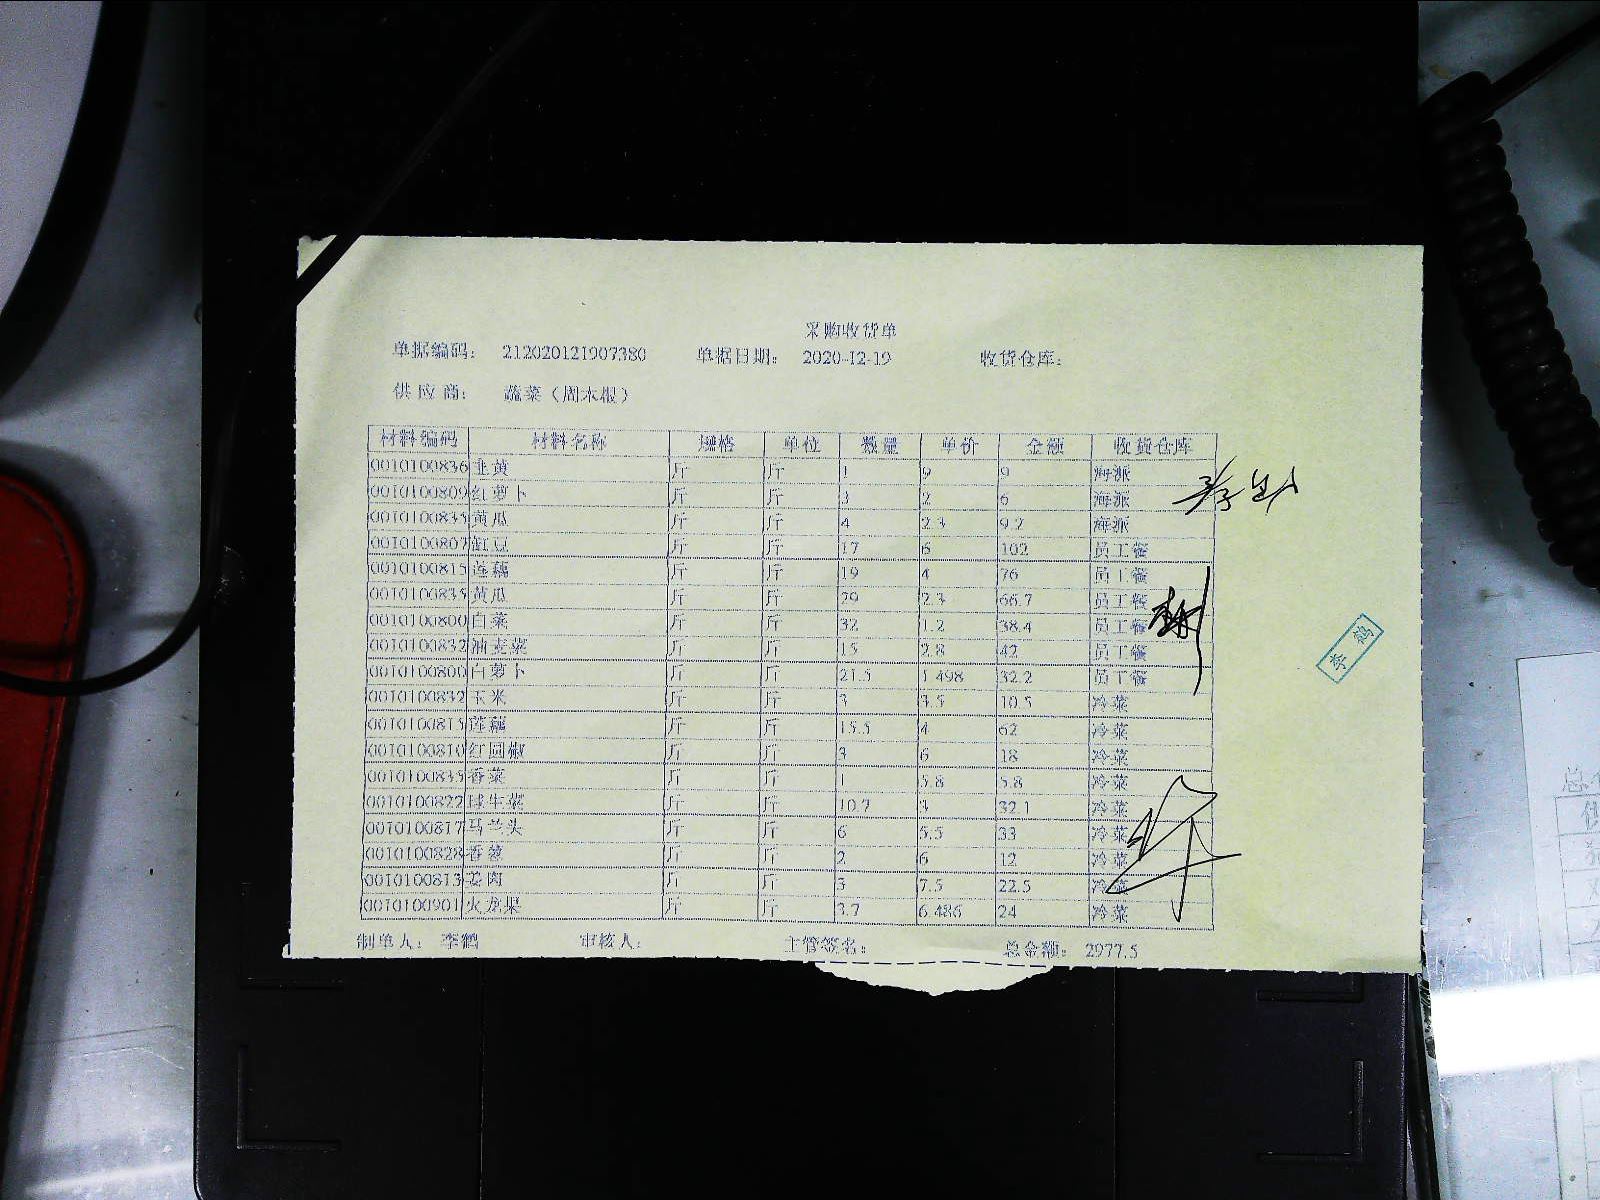 采购收货单
单据编码： 212020121907380 单据日期： 2020-12-19 收货仓库：
供应商： 蔬菜（周木根）
材料编码 材料名称 规格 单位 数量 单价 金额 收货仓库
0010100836 韭黄 斤 斤 1 9 9 海派
0010100809 红萝卜 斤 斤 3 2 6 海派
0010100835 黄瓜 斤 斤 4 2.3 9.2 海派
0010100807 豇豆 斤 斤 17 6 102 员工餐
0010100815 莲藕 斤 斤 19 4 76 员工餐
0010100835 黄瓜 斤 斤 29 2.3 66.7 员工餐
0010100800 白菜 斤 斤 32 1.2 38.4 员工餐
0010100832 油麦菜 斤 斤 15 2.8 42 员工餐
0010100800 白萝卜 斤 斤 21.5 1.498 32.2 员工餐
0010100832 玉米 斤 斤 3 3.5 10.5 冷菜
0010100815 莲藕 斤 斤 15.5 4 62 冷菜
0010100810 红圆椒 斤 斤 3 6 18 冷菜
0010100835 香菜 斤 斤 1 5.8 5.8 冷菜
0010100822 球生菜 斤 斤 10.7 3 32.1 冷菜
0010100817 马兰头 斤 斤 6 5.5 33 冷菜
0010100828 香葱 斤 斤 2 6 12 冷菜
0010100813 姜肉 斤 斤 3 7.5 22.5 冷菜
0010100901 火龙果 斤 斤 3.7 6.486 24 冷菜
制单人： 李鹤 审核人： 主管签名： 总金额： 2977.5
李鹤